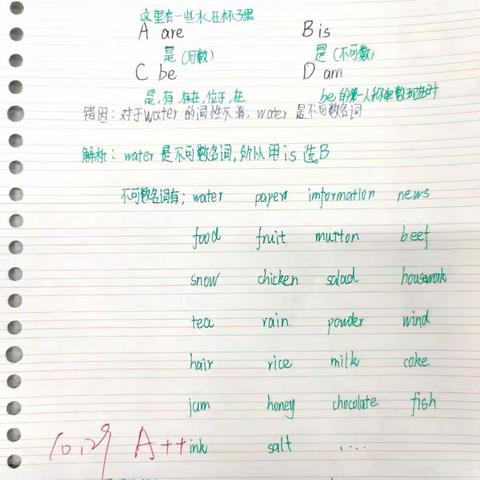 这里有一些水在杯子里
A are B is
是(可数) 是(不可数)
C be D am
是,有,存在,位于,在 be的第一人称单数现在时
错因:对于water的词性不清,water是不可数名词
解析:water是不可数名词,所以用is选B
不可数名词有;water payers imformation news
food fruit mutton beef
snow chicken salad housework
tea rain powder wind
hair rice milk coke
jam honey chocolate fish
10.29 A++ ink salt ....